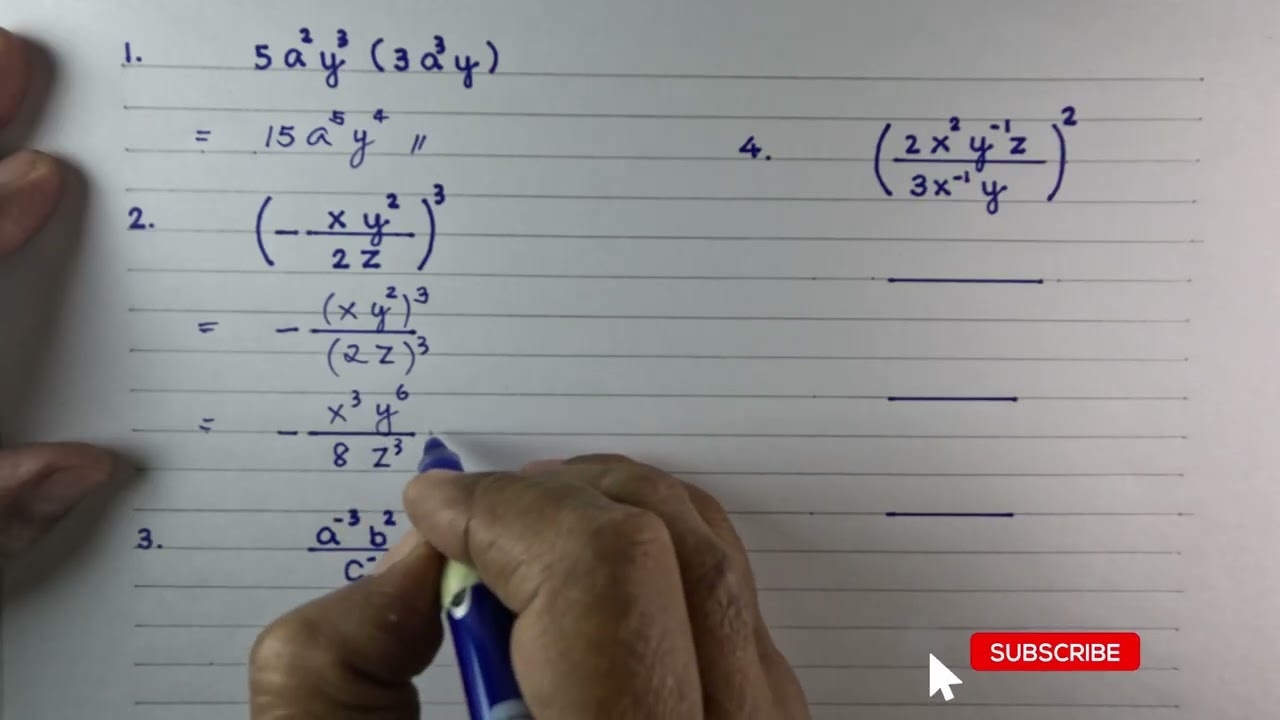 1. 5a²y³ (3a³y)
= 15a⁵y⁴ //
2. (- xy² / 2z)³
= - (xy²)³ / (2z)³
= - x³y⁶ / 8z³
3. a⁻³b² / c⁻
4. (2x²y⁻¹z / 3x⁻¹y)²
SUBSCRIBE